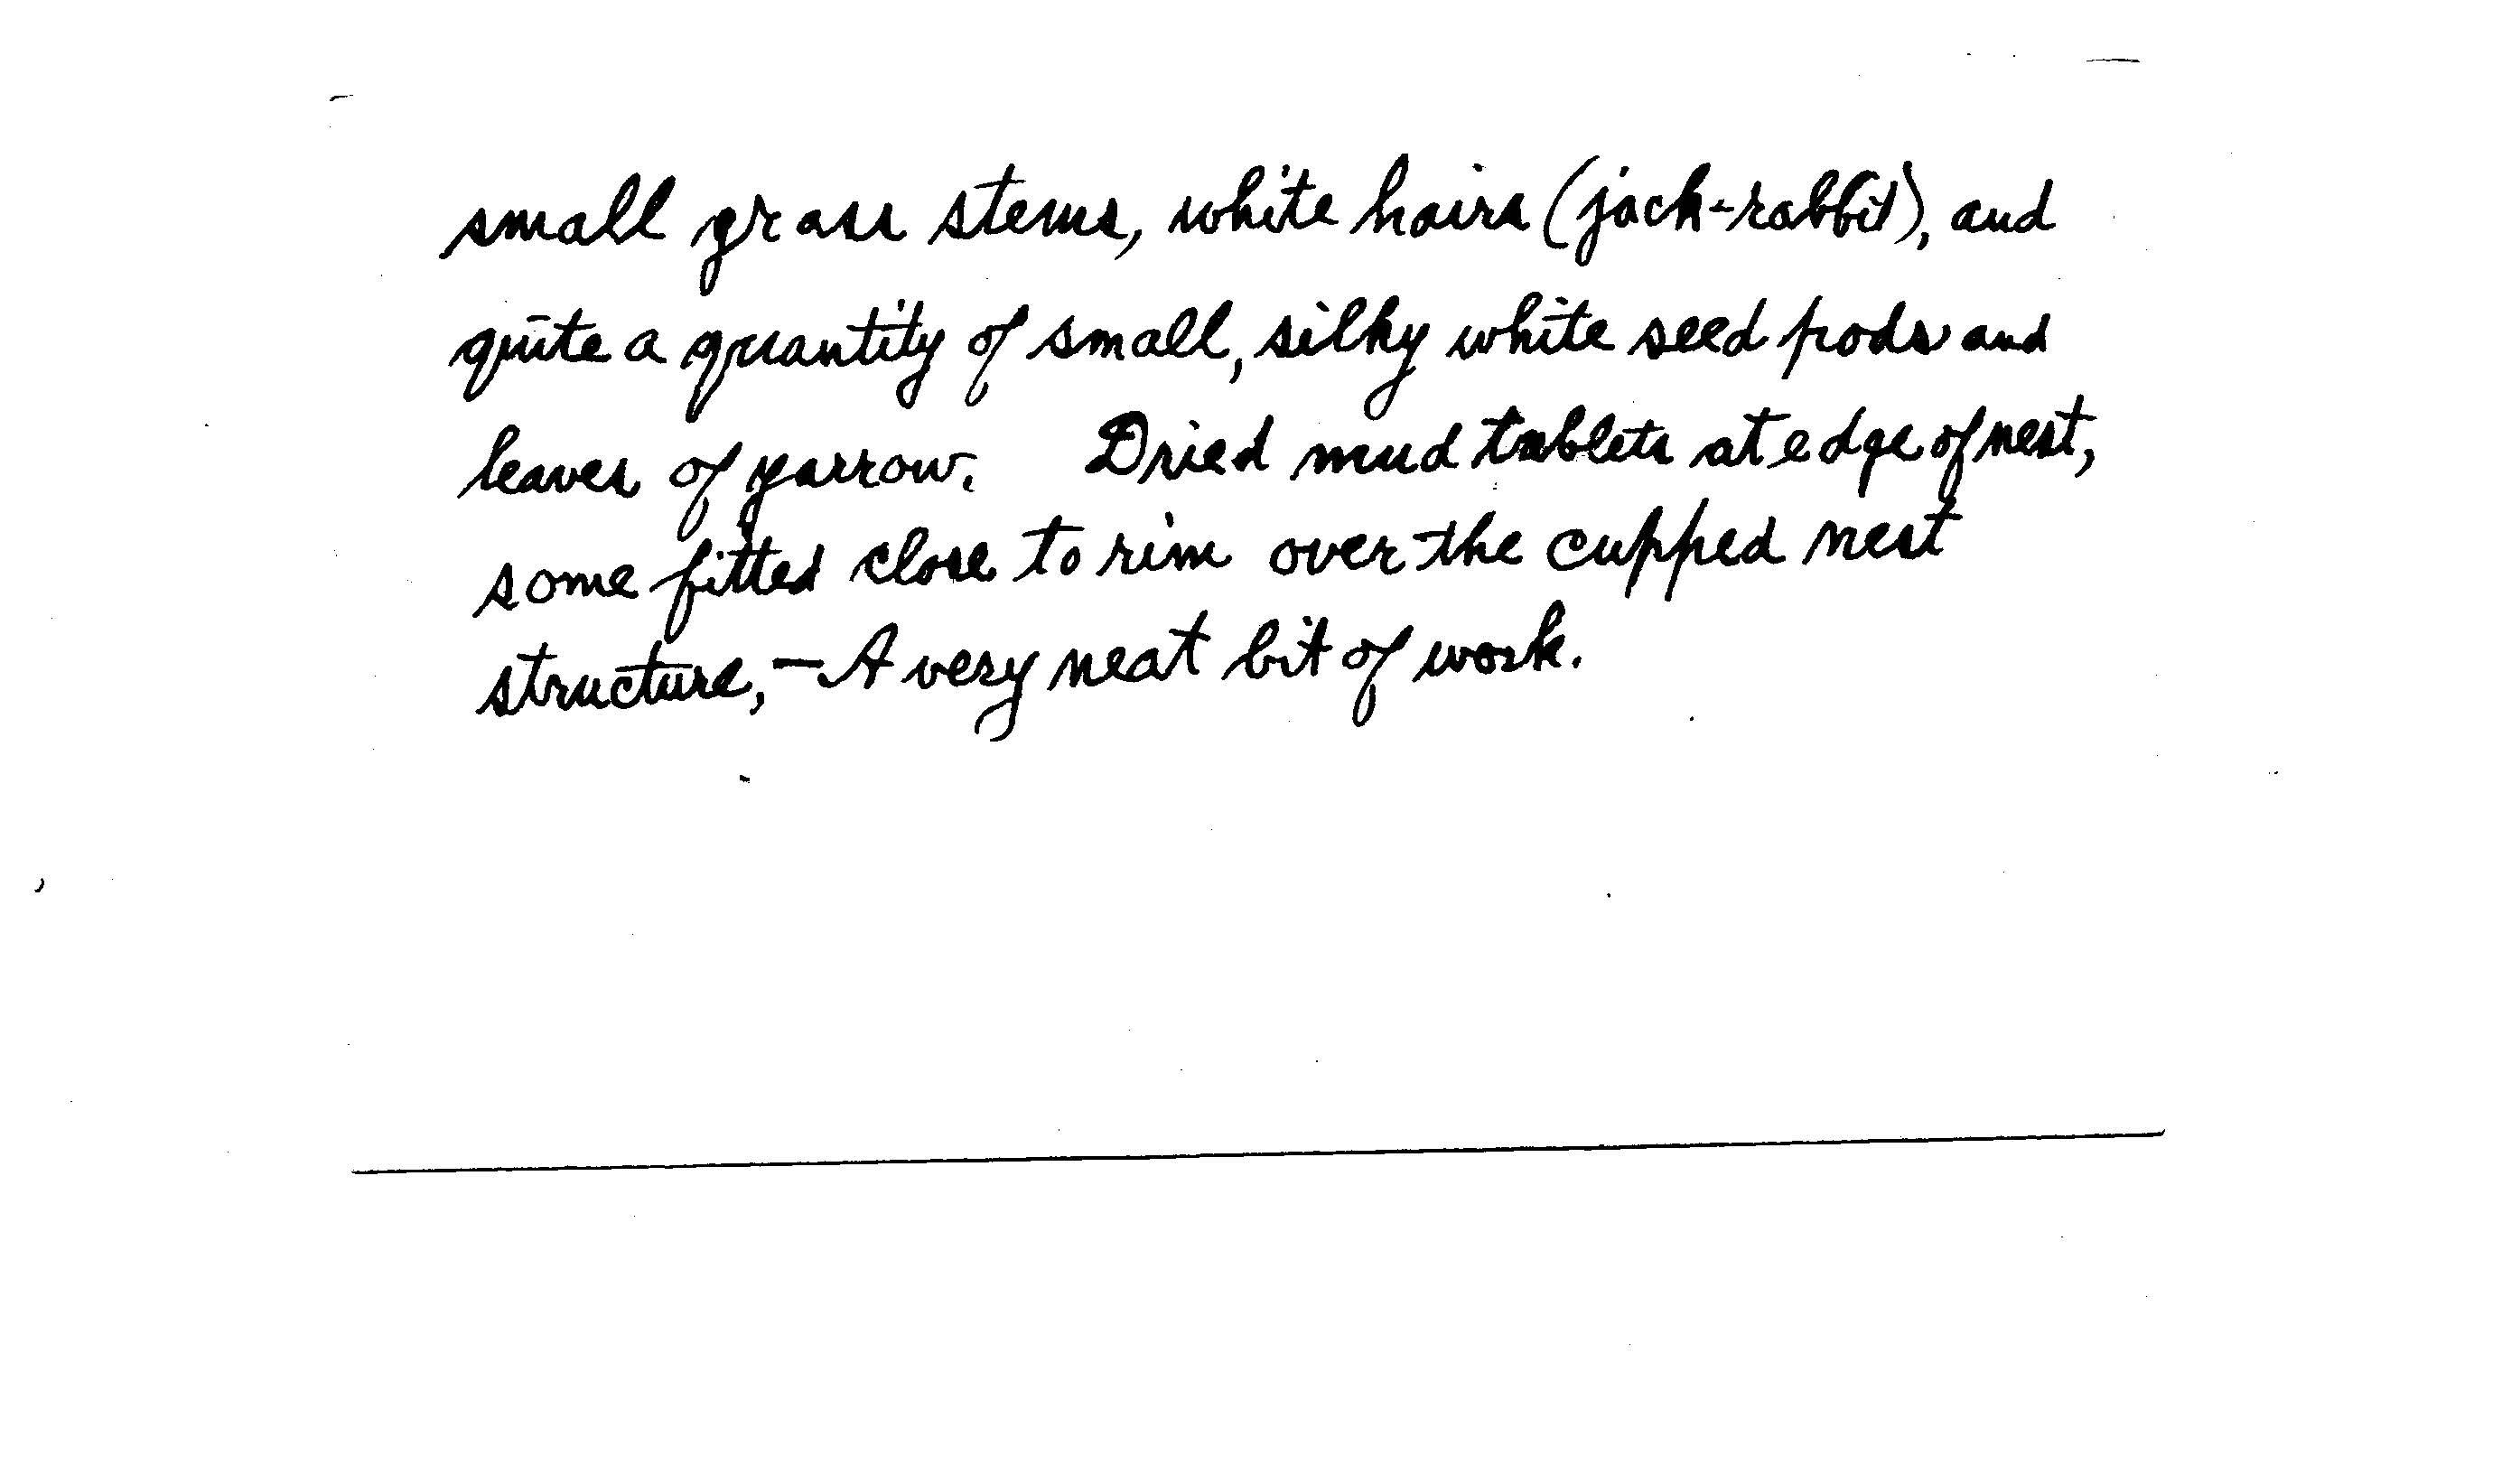 small grass stems, white hairs (jack-rabbit), and
quite a quantity of small, silky white seed pods and
leaves of yarrow. Dried mud tablets at edge of nest,
some fitted close to rim over the cupped nest
structure, - A very neat bit of work.